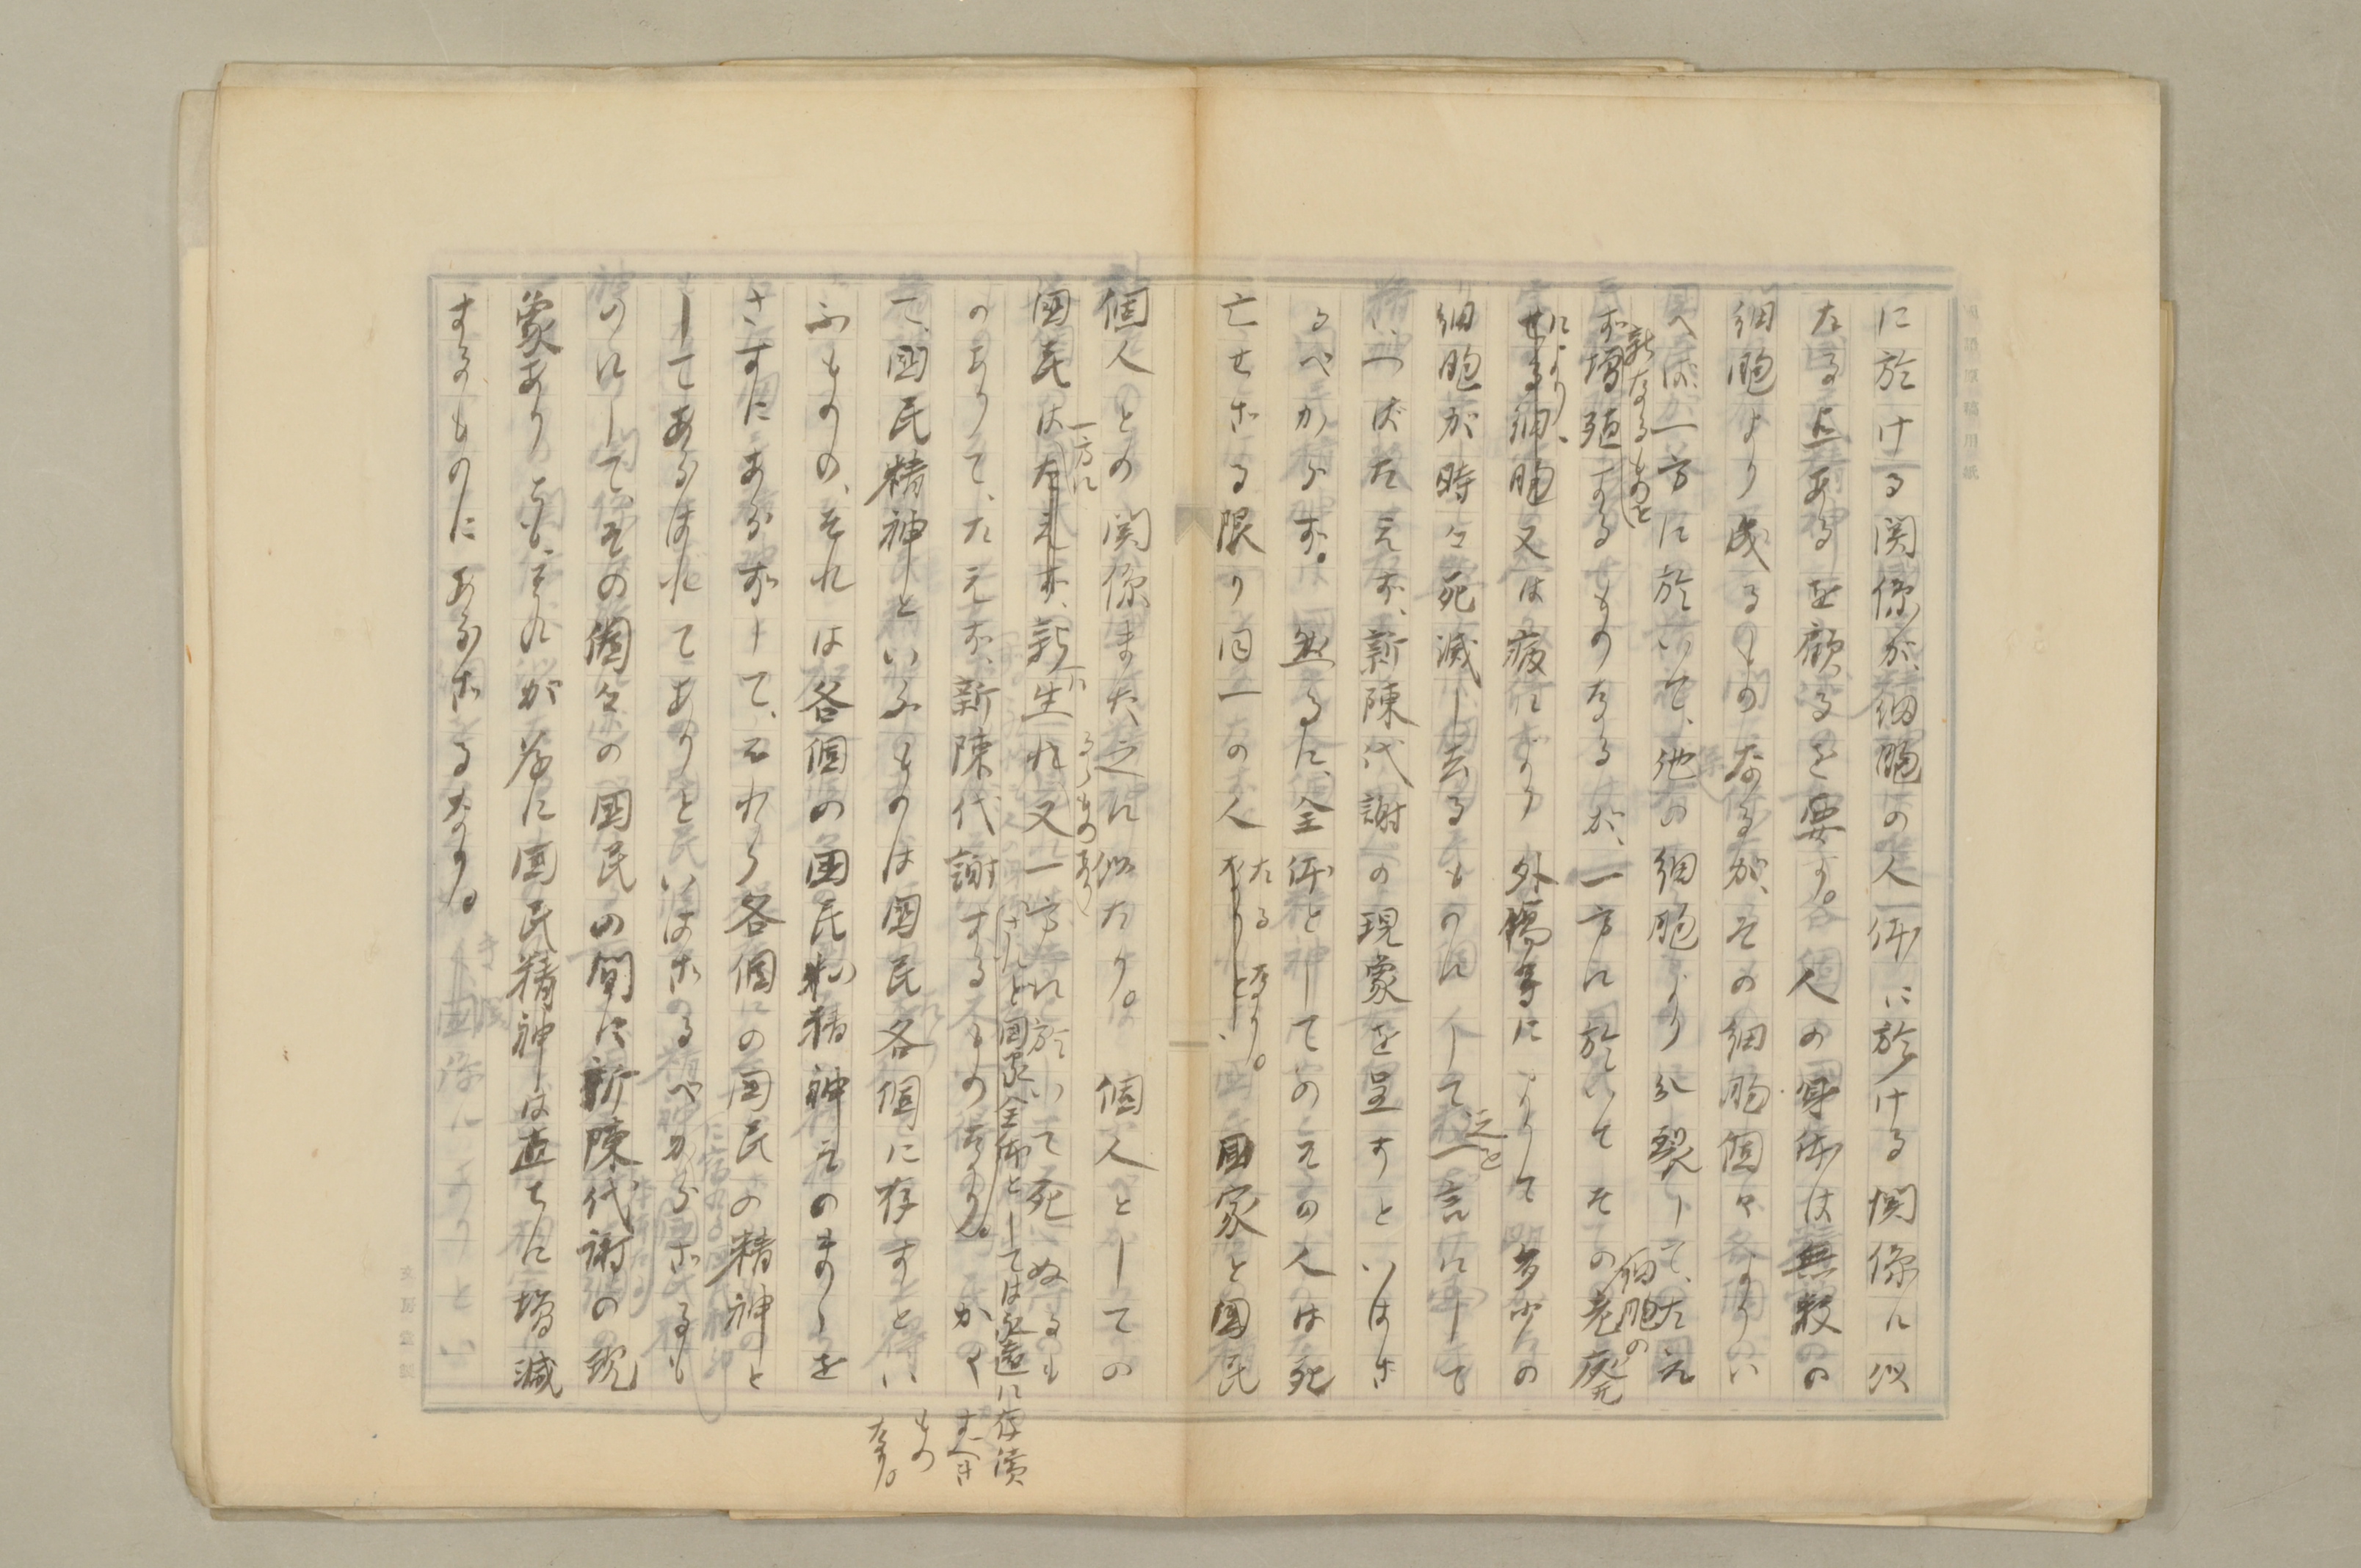 に於ける関係が、細胞の人体に於ける関係に似
たる点あるを顧るを要す。人の身体は無数の
細胞より成るものなるが、その細胞個々よりい
へば、一方に於いて、他の細胞より分裂して、たえ
新なるものと
ず増殖するものなるが、一方に於いてその老廃
細胞の
により、
せる細胞又は疫により外傷等によりて多少の
細胞が時々死滅し去るものにして一言にして
之を
いへばたえず、新陳代謝の現象を呈すといはざ
るべからず。然るに、全体としてのその人は死
亡せざる限り同一の人なりと、国家と国民
たるなり。
個人との関係また之に似たり。個人としての
国民はたえず、新生れ又一方に於いて死ぬるも
一方に
るゝものあり
のありて、たえず、新陳代謝するものなり。かや
されど国家全体としては永遠に存続
すべき
もの
なり。
て、国民精神といふものは国民各個に存すとい
ふものの、それは各個の国民精神そのまゝを
さすにあらずして、それら各個の国民の精神と
してあらはれてありといはざるべからざるも
のにして、その個々の国民の間に新陳代謝の現
象ありとも、それが為に国民精神は直ちに増減
するものにあらざるなり。